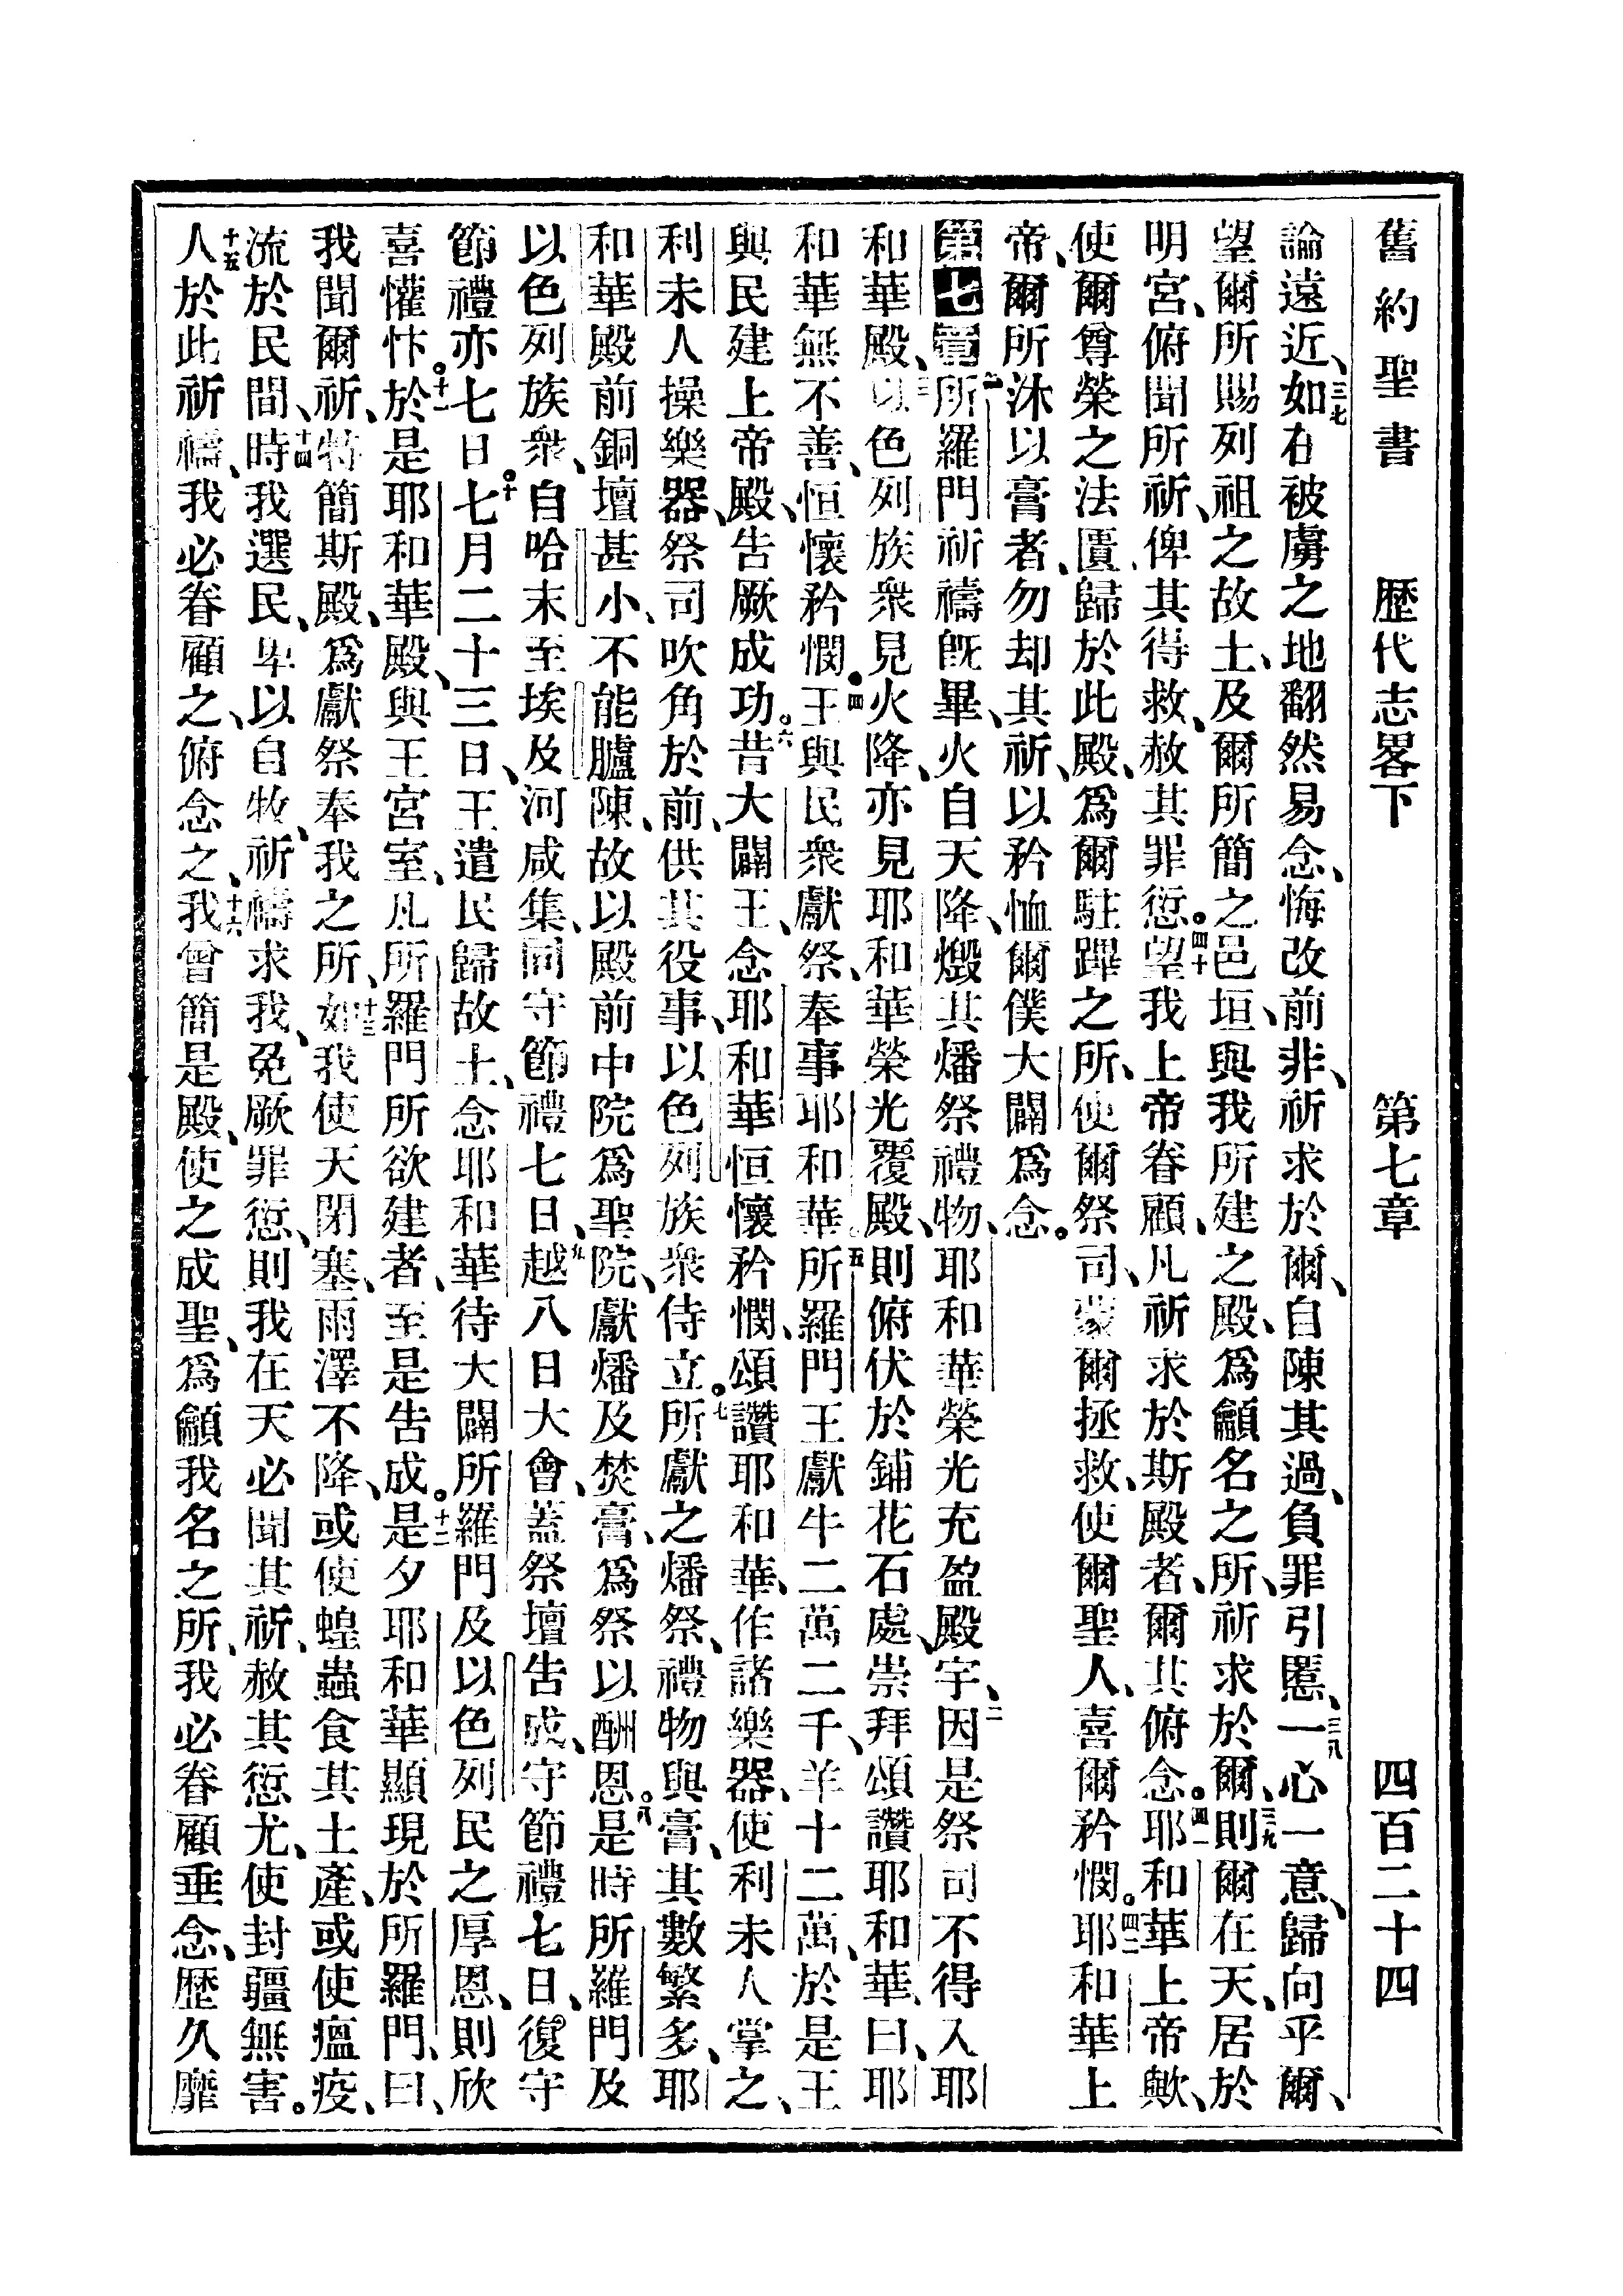 舊約聖書 歷代志畧下 第七章 四百二十四
論遠近、三七如在被虜之地翻然易念、悔改前非、祈求於爾、自陳其過、負罪引慝、三八一心一意、歸向乎爾、
望爾所賜列祖之故土、及爾所簡之邑垣、與我所建之殿、爲籲名之所、祈求於爾、三九則爾在天、居於
明宮、俯聞所祈、俾其得救、赦其罪愆。四十望我上帝眷顧、凡祈求於斯殿者、爾其俯念。四一耶和華上帝歟、
使爾尊榮之法匱、歸於此殿、爲爾駐蹕之所、使爾祭司、蒙爾拯救、使爾聖人、喜爾矜憫。四二耶和華上
帝、爾所沐以膏者、勿却其祈、以矜恤爾僕大闢爲念。
第七章 一所羅門祈禱旣畢、火自天降、燬其燔祭禮物、耶和華榮光充盈殿宇、二因是祭司不得入耶
和華殿、三以色列族衆見火降、亦見耶和華榮光覆殿、則俯伏於鋪花石處、崇拜頌讚耶和華、曰、耶
和華無不善、恒懷矜憫。四王與民衆獻祭、奉事耶和華、五所羅門王獻牛二萬二千、羊十二萬、於是王
與民建上帝殿、告厥成功。六昔大闢王、念耶和華恒懷矜憫、頌讚耶和華、作諸樂器、使利未人掌之、
利未人操樂器、祭司吹角於前、供其役事、以色列族衆侍立。七所獻之燔祭、禮物與膏、其數繁多、耶
和華殿前銅壇甚小、不能臚陳、故以殿前中院爲聖院、獻燔及焚膏、爲祭以酬恩。八是時所羅門及
以色列族衆、自哈末至埃及河咸集、同守節禮七日、九越八日大會、蓋祭壇告成、守節禮七日、復守
節禮亦七日。十七月二十三日、王遣民歸故土、念耶和華待大闢所羅門及以色列民之厚恩、則欣
喜懽忭。十一於是耶和華殿、與王宮室、凡所羅門所欲建者、至是告成。十二是夕耶和華顯現於所羅門、曰、
我聞爾祈、特簡斯殿、爲獻祭奉我之所、十三如我使天閉塞、雨澤不降、或使蝗蟲食其土產、或使瘟疫、
流於民間、十四時我選民、卑以自牧、祈禱求我、免厥罪愆、則我在天必聞其祈、赦其愆尤、使封疆無害。
十五人於此祈禱、我必眷顧之、俯念之、十六我曾簡是殿、使之成聖、爲籲我名之所、我必眷顧垂念、歷久靡